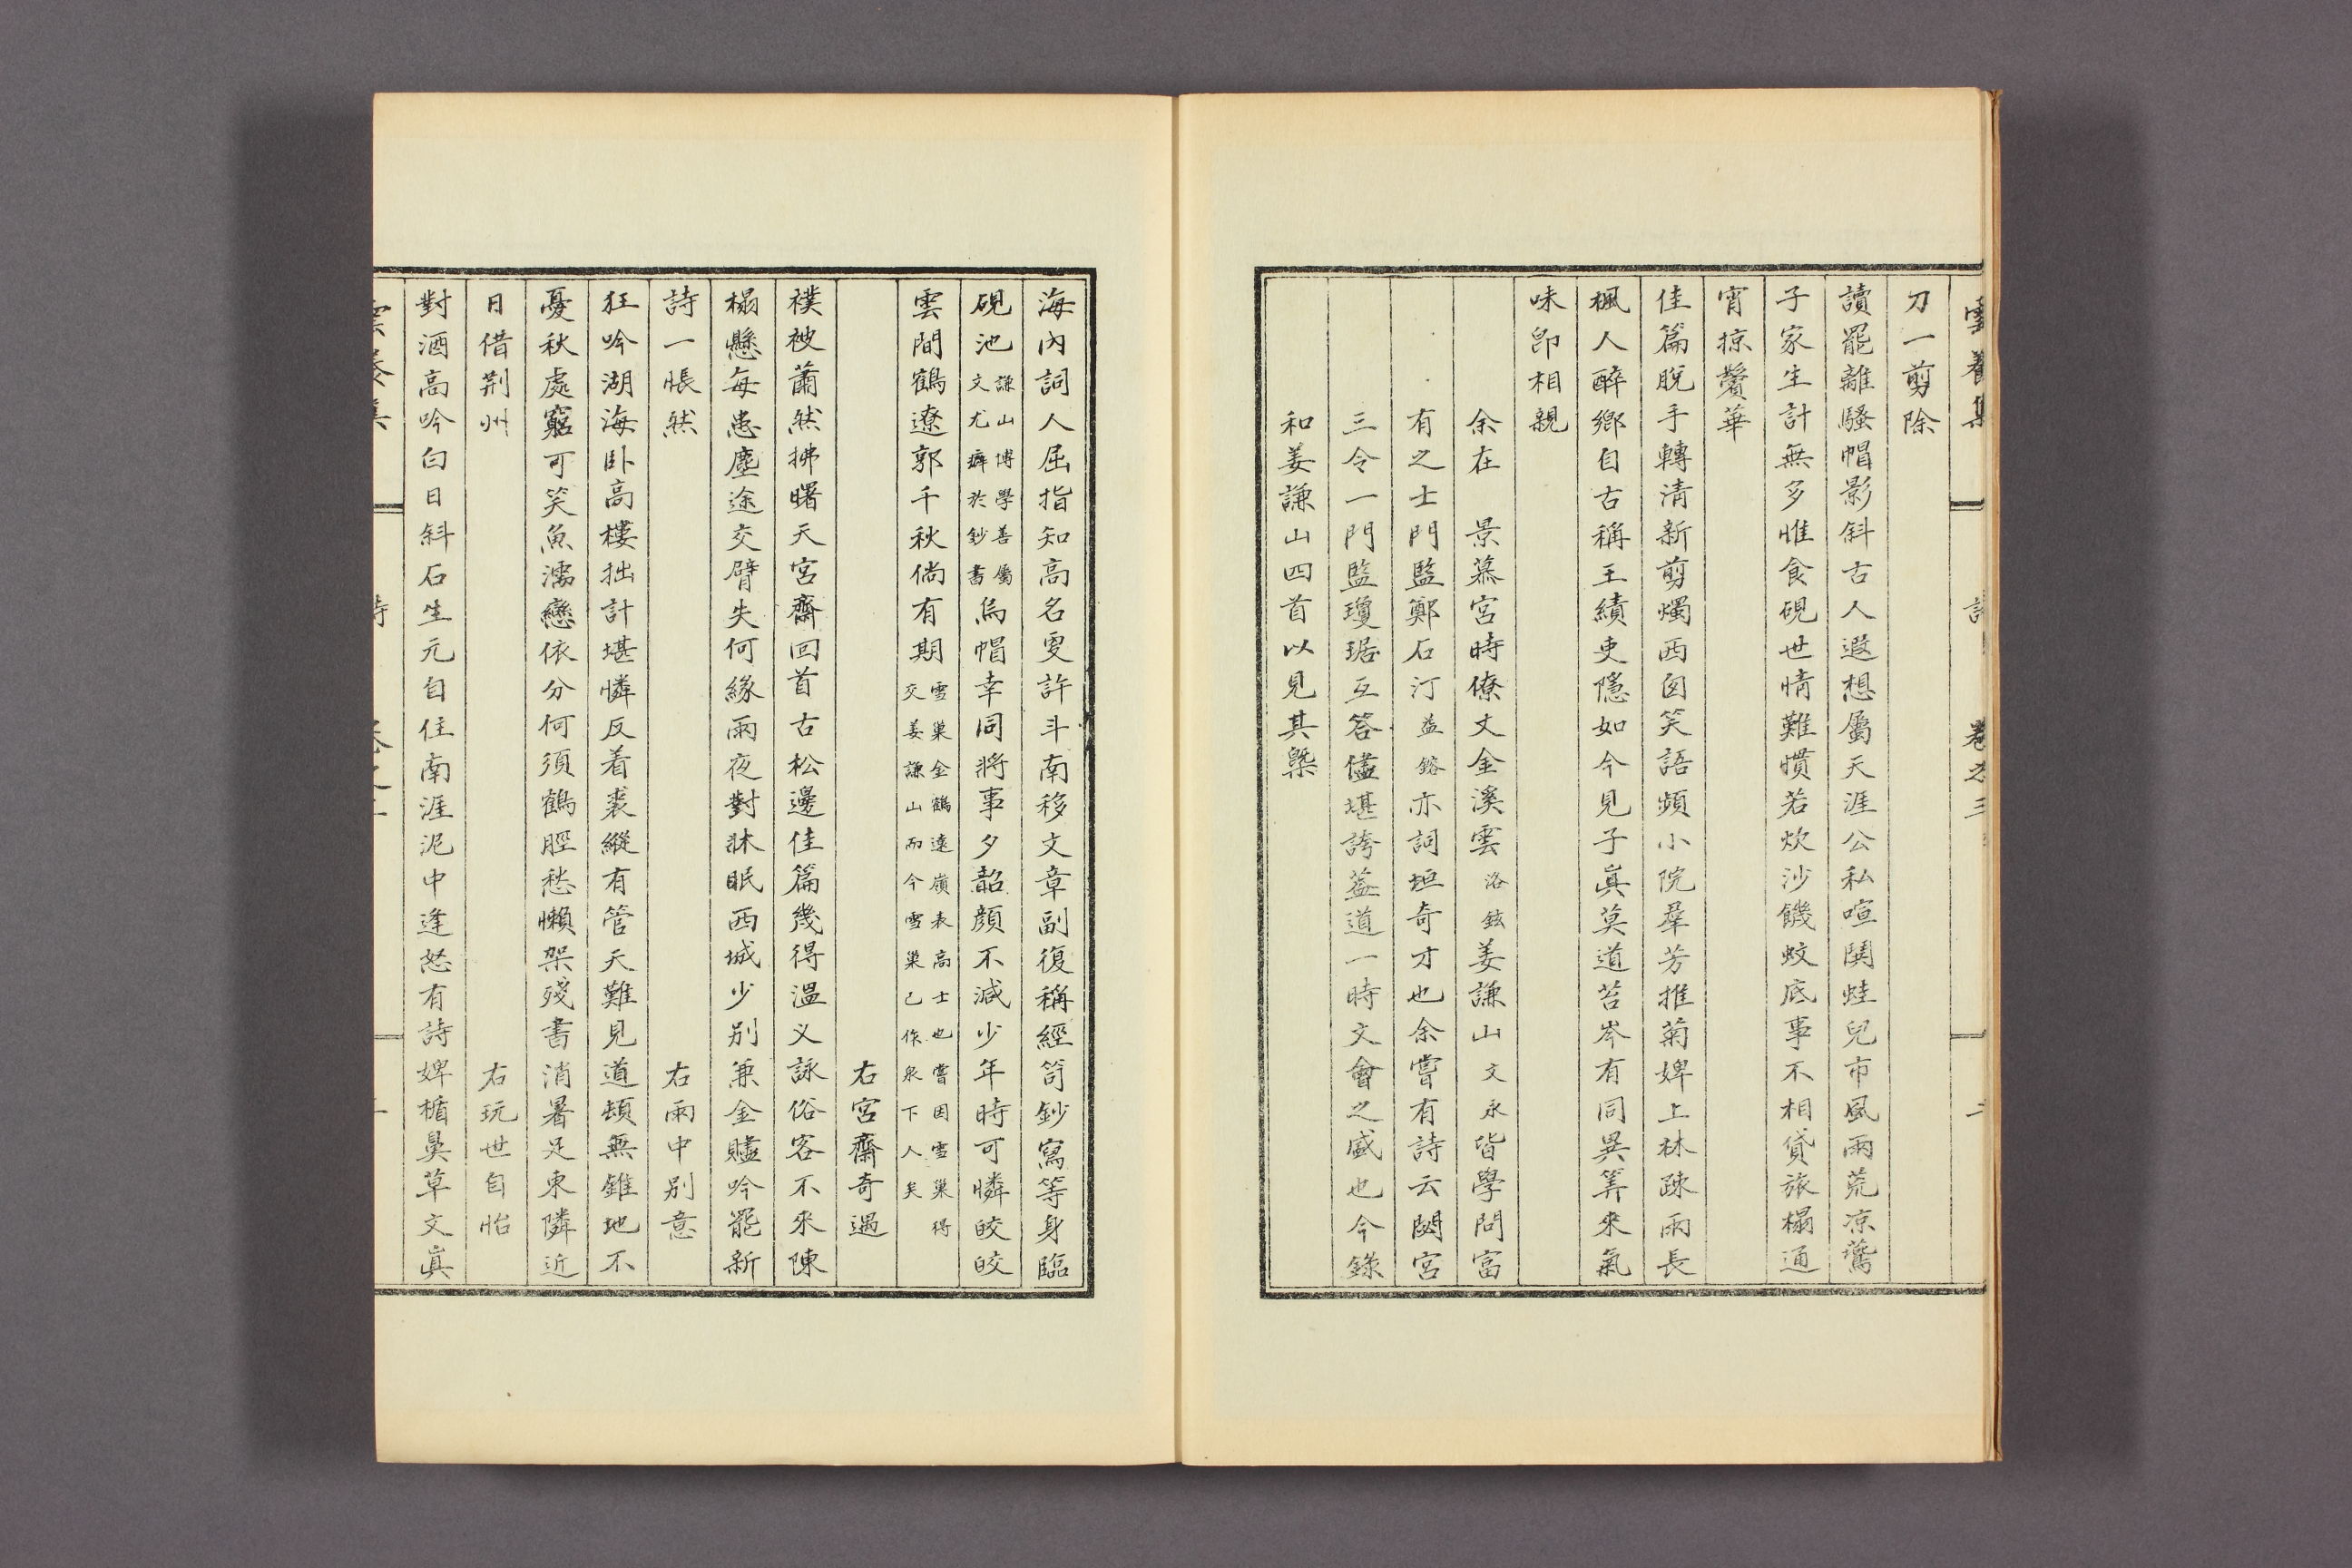 雲養集 詩 卷之三 二
刀一剪除
讀罷離騷帽影斜古人遐想屬天涯公私喧鬨蛙兒市風雨荒凉鷰
子家生計無多惟食硯世情難慣若炊沙饑蚊底事不相貸旅榻通
宵掠鬢華
佳篇脫手轉清新剪燭西囱笑語頻小院羣芳推菊婢上林踈雨長
楓人醉鄉自古稱王績吏隱如今見子眞莫道苔岑有同異筭來氣
味卽相親
余在 景慕宮時僚丈金溪雲洛鉉姜謙山文永皆學問富
有之士門監鄭石汀益鎔亦詞垣奇才也余嘗有詩云閟宮
三令一門監瓊琚互答儘堪誇葢道一時文會之盛也今錄
和姜謙山四首以見其槩
海內詞人屈指知高名寔許斗南移文章副復稱經笥鈔寫等身臨
硯池謙山博學善屬文尤癖於鈔書烏帽幸同將事夕韶顏不減少年時可憐皎皎
雲間鶴遼郭千秋倘有期雪巢金鶴遠嶺表高士也嘗因雪巢得交姜謙山而今雪巢已作泉下人矣
右宮齋奇遇
襆被蕭然拂曙天宮齋回首古松邊佳篇幾得溫乂詠俗客不來陳
榻懸每患塵途交臂失何緣雨夜對牀眠西城少別兼金贐吟罷新
詩一悵然 右雨中別意
狂吟湖海卧高樓拙計堪憐反着裘縱有管天難見道頓無錐地不
憂秋處窮可笑魚濡戀依分何須鶴脛愁懶架殘書消暑足東隣近
日借荆州 右玩世自怡
對酒高吟白日斜石生元自住南涯泥中逢怒有詩婢楯鼻草文眞